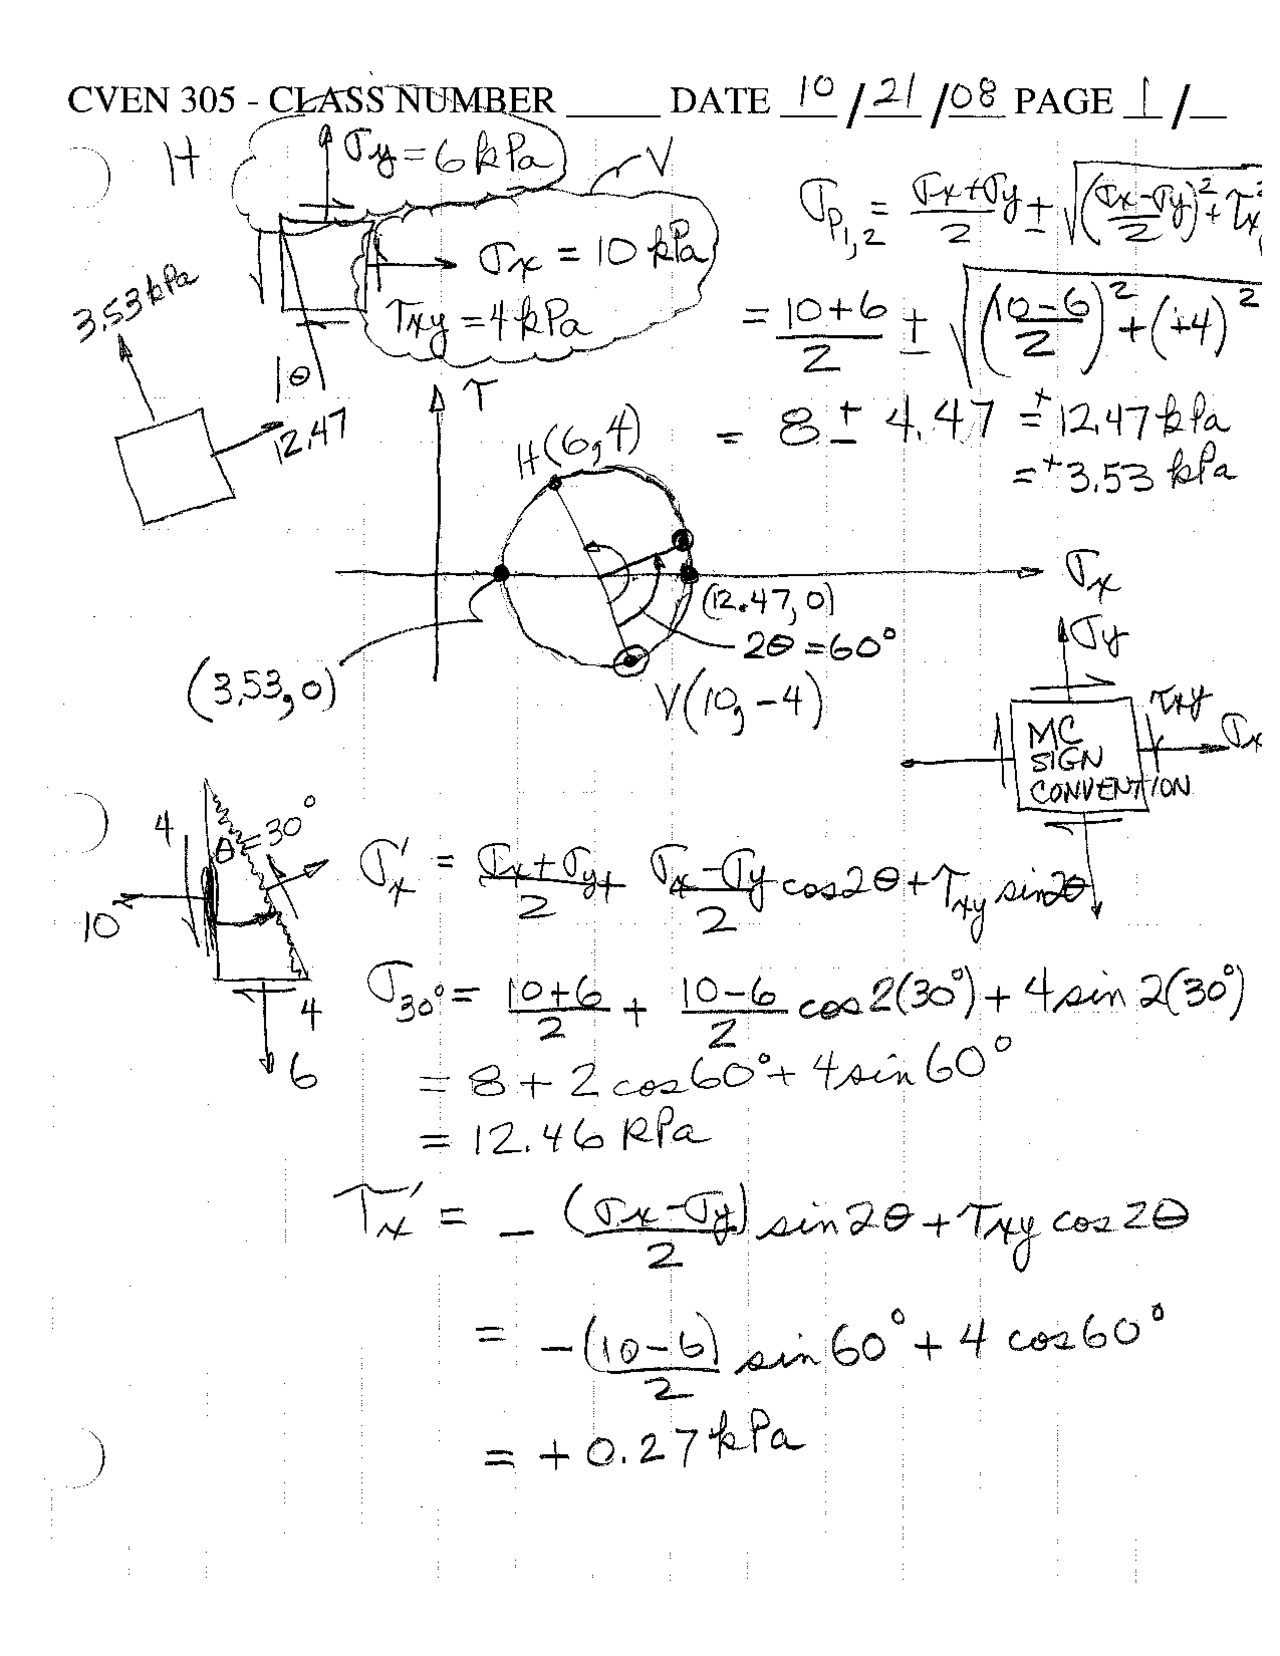 CVEN 305 - CLASS NUMBER _____ DATE 10/21/08 PAGE 1/__
H
σy = 6 kPa
V
σx = 10 kPa
τxy = 4 kPa
θ
3.53 kPa
12.47
σP1,2 = (σx+σy)/2 ± √((σx-σy)/2)² + τx
= (10+6)/2 ± √((10-6)/2)² + (+4)²
= 8 ± 4.47 = +12.47 kPa
= +3.53 kPa
τ
H(6, 4)
σx
(12.47, 0)
2θ = 60°
(3.53, 0)
V(10, -4)
σy
τxy
σx
MC
SIGN
CONVENTION
4
θ = 30°
10
4
6
σx' = (σx+σy)/2 + (σx-σy)/2 cos2θ + τxy sin2θ
σ30° = (10+6)/2 + (10-6)/2 cos 2(30°) + 4 sin 2(30°)
= 8 + 2 cos60° + 4 sin 60°
= 12.46 kPa
τx' = - (σx-σy)/2 sin2θ + τxy cos 2θ
= -(10-6)/2 sin 60° + 4 cos 60°
= +0.27 kPa